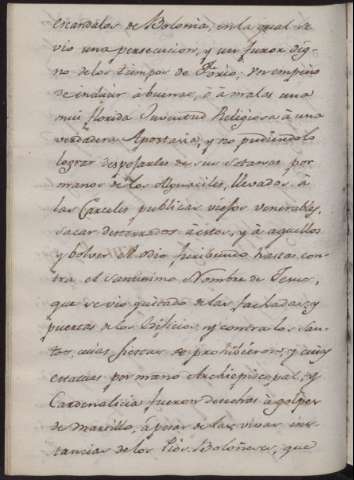 escandalos de Bolonia, en la qual se
vio una persecucion, y un furor dig-
no de los tiempos de Porio: Un empeño
de inducir à buenas, ô â malas una
mui florida Juventud Religiosa à una
verdadera Apostasia, y no pudiendolo
lograr despojarles de sus sotanas por
manos de los Alguaciles, llevados à
las Carceles publicas viejos venerables,
sacar desterrados à estos, y à aquellos
y bolver el odio furibundo hasta con-
tra el Santisimo Nombre de Jesus,
que se vio quitado de las fachadas, y
puertas de los Edificios, y contra los San-
tos, cuias fiestas se prohibieron, y cuias
estatuas por mano Archiepiscopal, y
Cardenalicia fueron desechas à golpes
de martillo, à pesar de las vivas ins-
tancias de los Pios Boloñeses, que